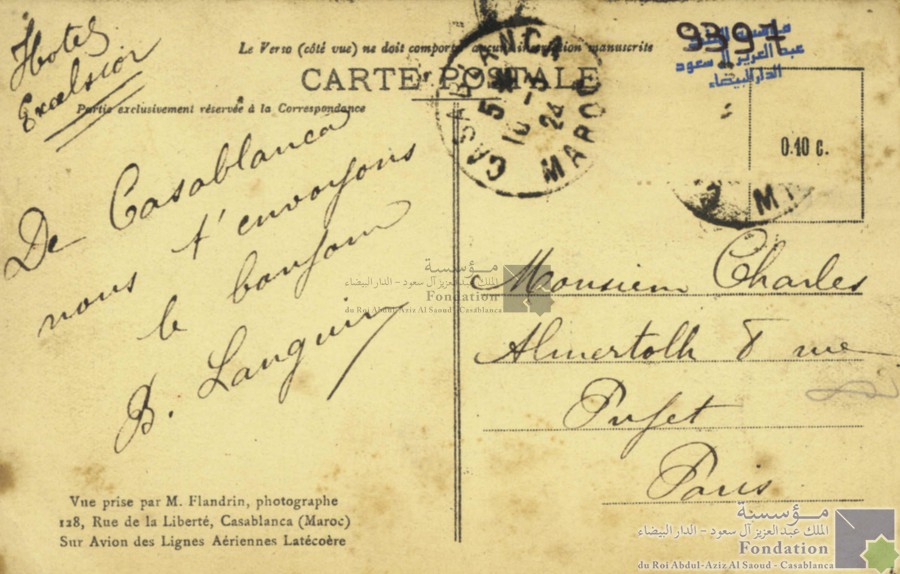 Hotel
Excelsior
Le Verso (côté vue) ne doit comporter aucune inscription manuscrite
CARTE POSTALE
Partie exclusivement réservée à la Correspondance
CASABLANCA
5
10 - 3
24
MAROC
9397
مؤسسة الملك
عبد العزيز آل سعود
الدار البيضاء
0.10 c.
De Casablanca
nous t'envoyons
le bonjour
B. Languin
Monsieur Charles
8 rue
Puget
Paris
مؤسسة
الملك عبد العزيز آل سعود - الدار البيضاء
Fondation
du Roi Abdul-Aziz Al Saoud - Casablanca
Vue prise par M. Flandrin, photographe
128, Rue de la Liberté, Casablanca (Maroc)
Sur Avion des Lignes Aériennes Latécoère
مؤسسة
الملك عبد العزيز آل سعود - الدار البيضاء
Fondation
du Roi Abdul-Aziz Al Saoud - Casablanca